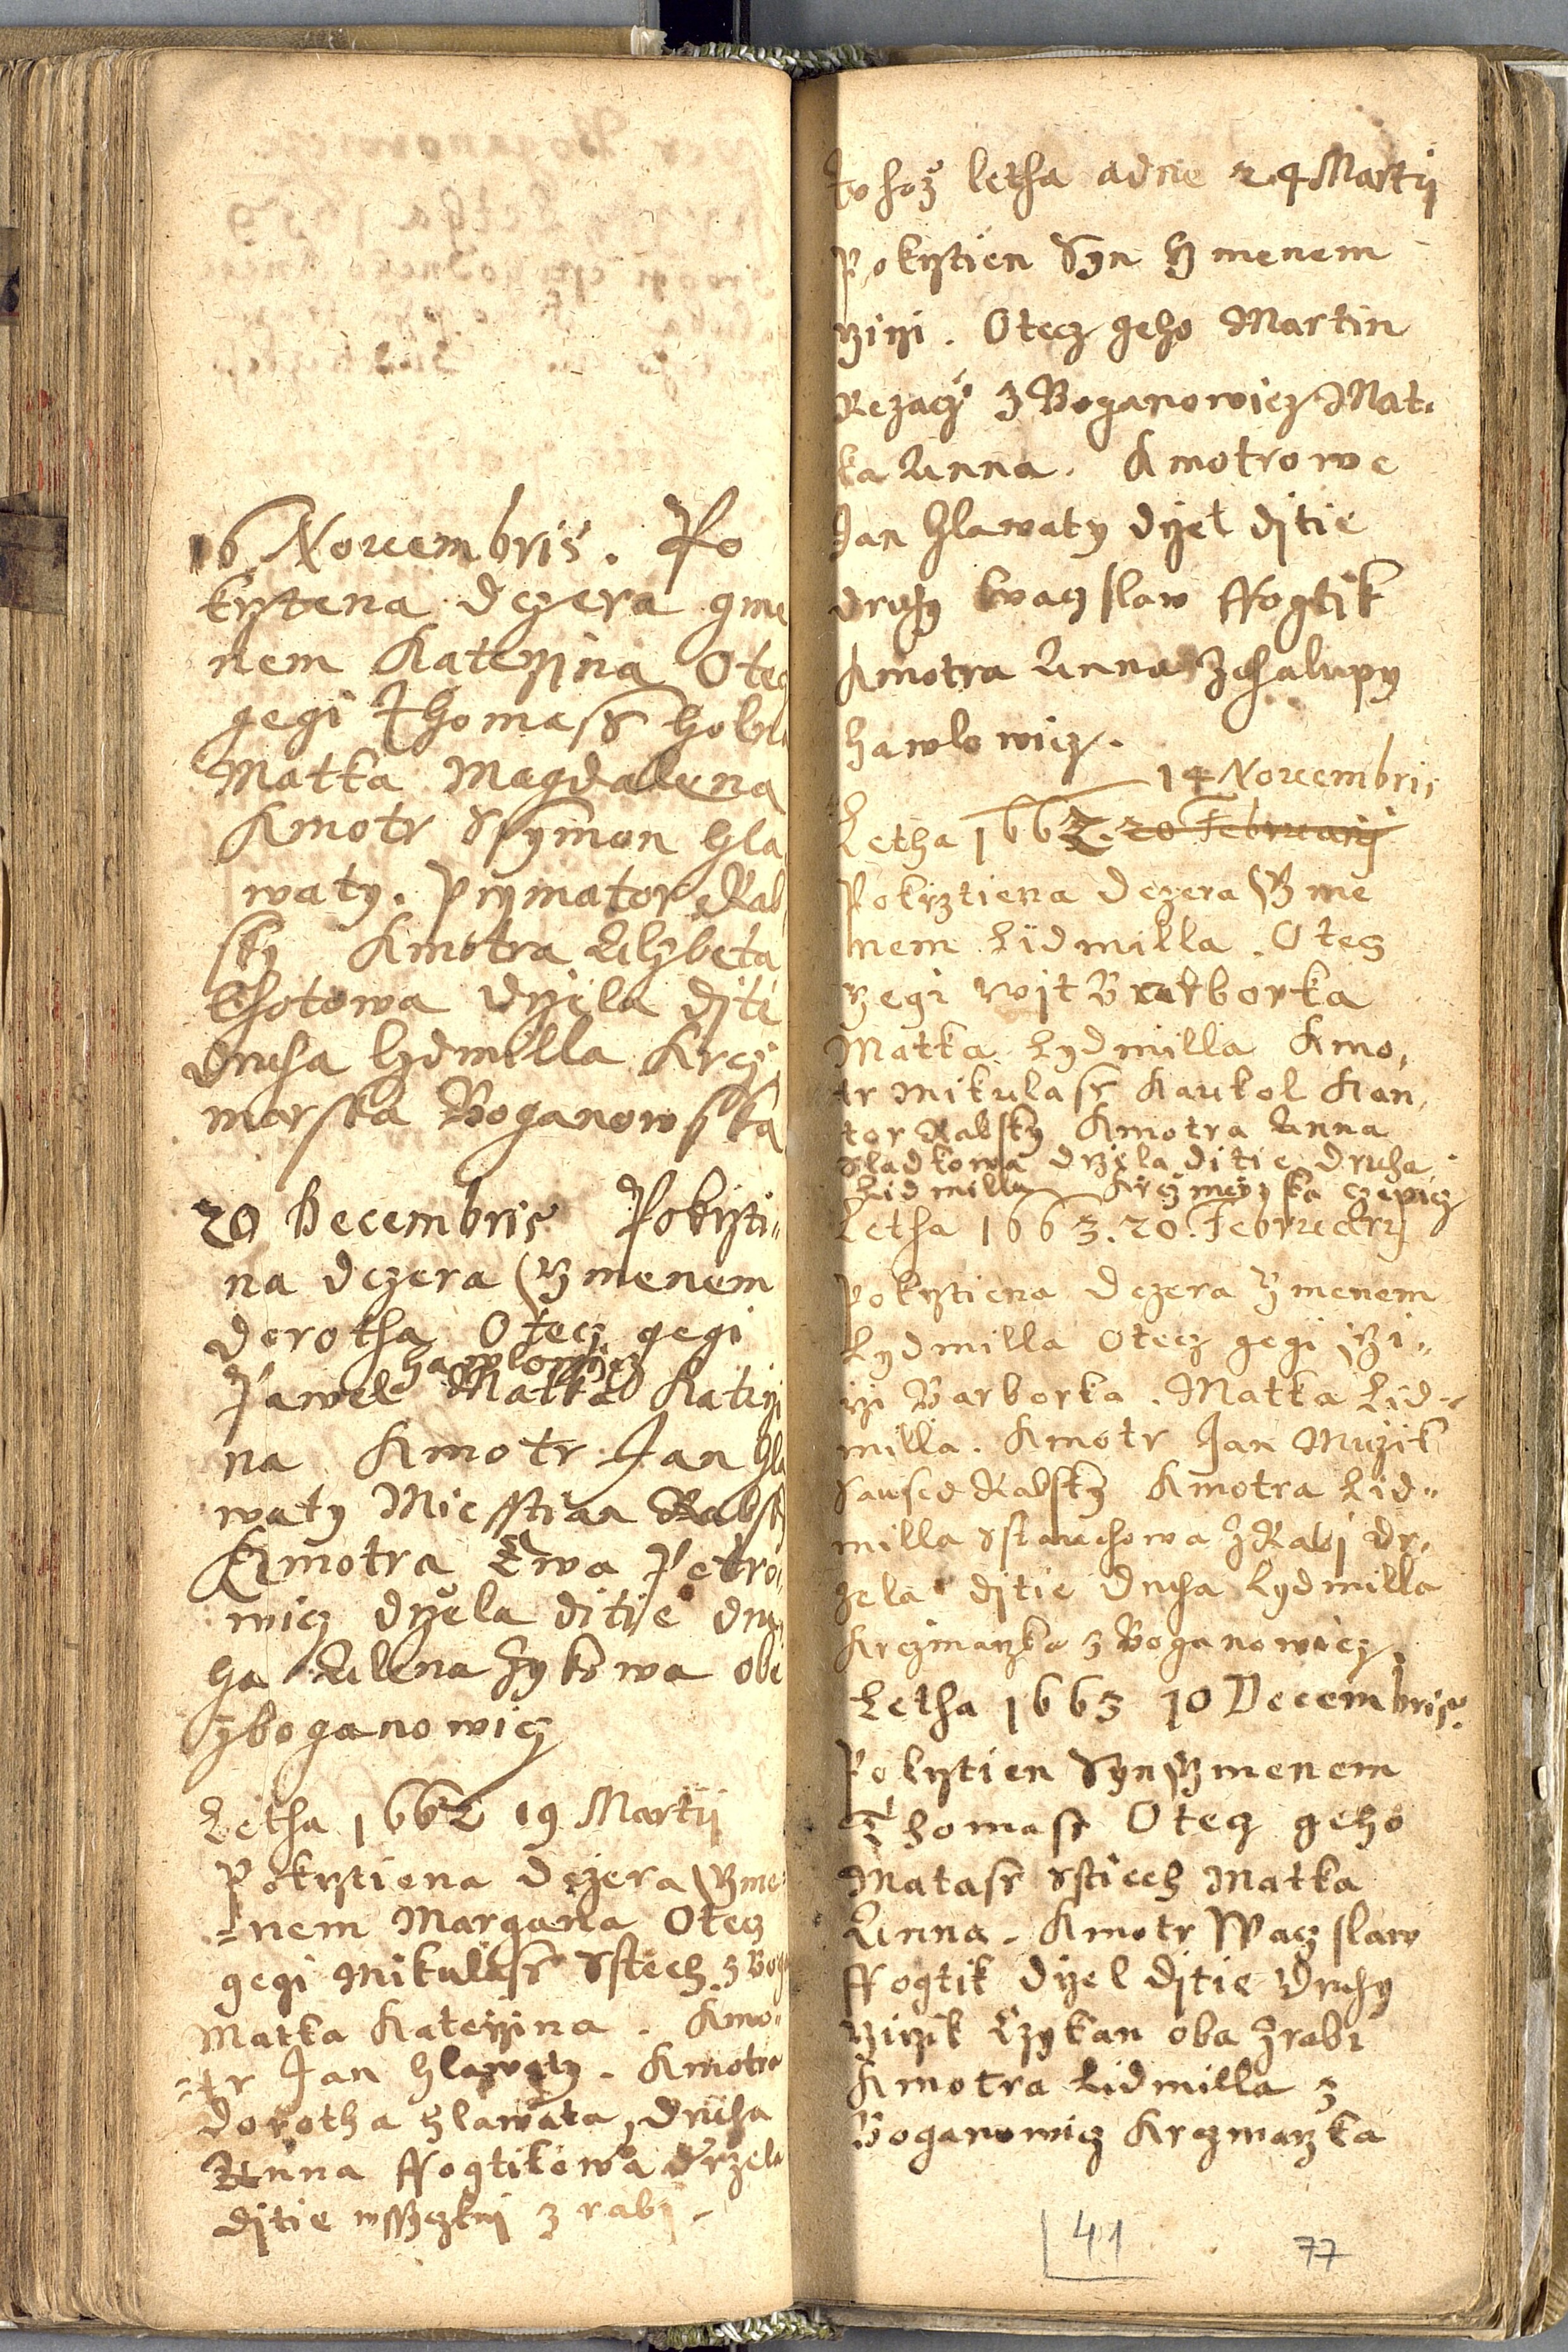 16 Nouembris. Po
krztena dczera gme
nem Katerzina Otecz
gegi Thomass
Matka Magdalena
Kmotr Ssymon Hla
waty. Prymator Rab
sky Kmotra Alzbeta
drzela djti
druha Lydmilla Krcz
marska Boganowska
20 Decembris Pokrzti„
na dczera gmenem
Dorotha Otecz gegi
hawlowicz
Pawel Matka Katerzi
na Kmotr Jan Hla
waty Miesstian Rabsky
Kmotra Ewa Petro„
wicz drzela ditie dru„
ha Alena Zykowa obe
z boganowicz
Letha 1662 19 Martij
Pokrztiena dczera gme„
=nem Margana Otecz
gegi Mikulass Sstech z Bog
Matka Katerzina. Kmo„
=tr Jan Hlawaty. Kmotra
Dorotha Hlawata, druha
Anna ffogtikowa drzela
djtie wssyczknj z rabj
tohoz letha adne 24 Martij
Pokrztien Syn gmenem
girzi. Otecz geho Martin
Rezacz z Boganowicz Mat„
ka Anna. Kmotrowe
Jan Hlawaty drzel djtie
druhy Waczslaw ffogtik
Kmotra Anna z chalupy
hawlowicz.
14 Nouembris
Letha 1662. 20 Februarij
Pokrztiena dczera gme
nem Lidmilla. Otecz
gegi Wjt Barborka
Matka Lydmilla Kmo„
tr Mikulass Kaukol Kan„
tor Rabsky Kmotra Anna
Sladkowa drzela ditie druha
Lidmilla Krczmarzka czepicz
Letha 1663. 20. Februarij
Pokrztiena dczera gmenem
Lydmilla Otecz gegi girzi„
rzi Barborka. Matka Lid„
milla. Kmotr Jan Muzik
Saused Rabsky Kmotra Lid„
milla Sstauchowa z Rabj dr„
zela djtie druha Lydmilla
Krczmarzka z Boganowicz.
Letha 1663 10 Decembris.
Pokrztien Syn gmenem
Thomass Otecz geho
Matass Sstiech Matka
Anna. Kmotr Waczslaw
ffogtik drzel djtie druhy
girzik Czykan oba z rabi
Kmotra Lidmilla z
Boganowicz Krczmarzka
41
77